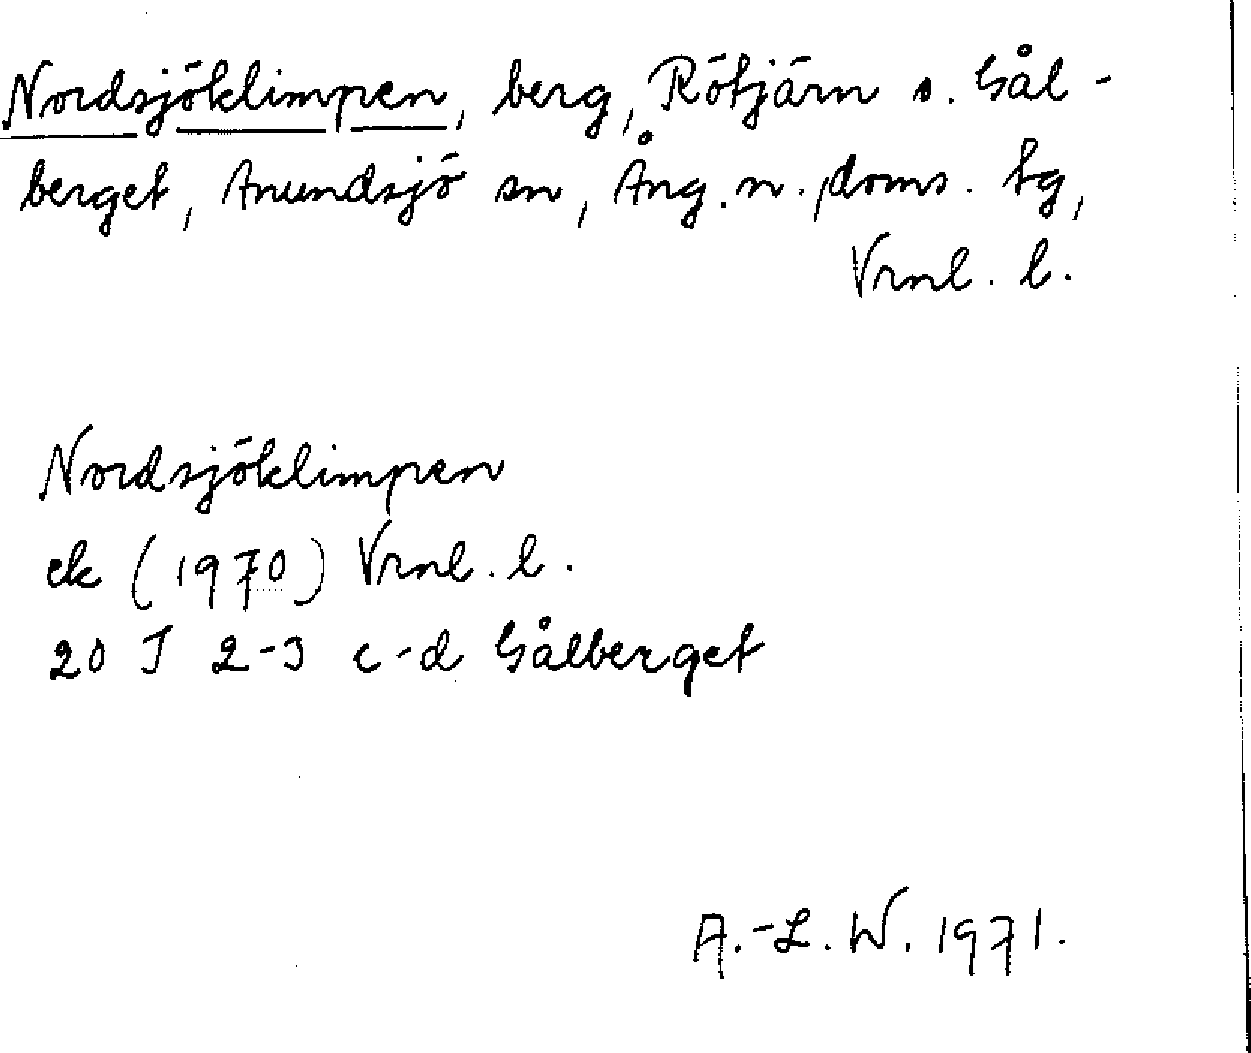 Nordsjöklimpen, berg, Rötjärn s. Gål-
berget, Anundsjö sn, Ång. n. doms. tg,
Vrnl. l.
Nordsjöklimpen
ek (1970) Vrnl. l.
20 J 2-3 c-d Gålberget
A.-L. W. 1971.